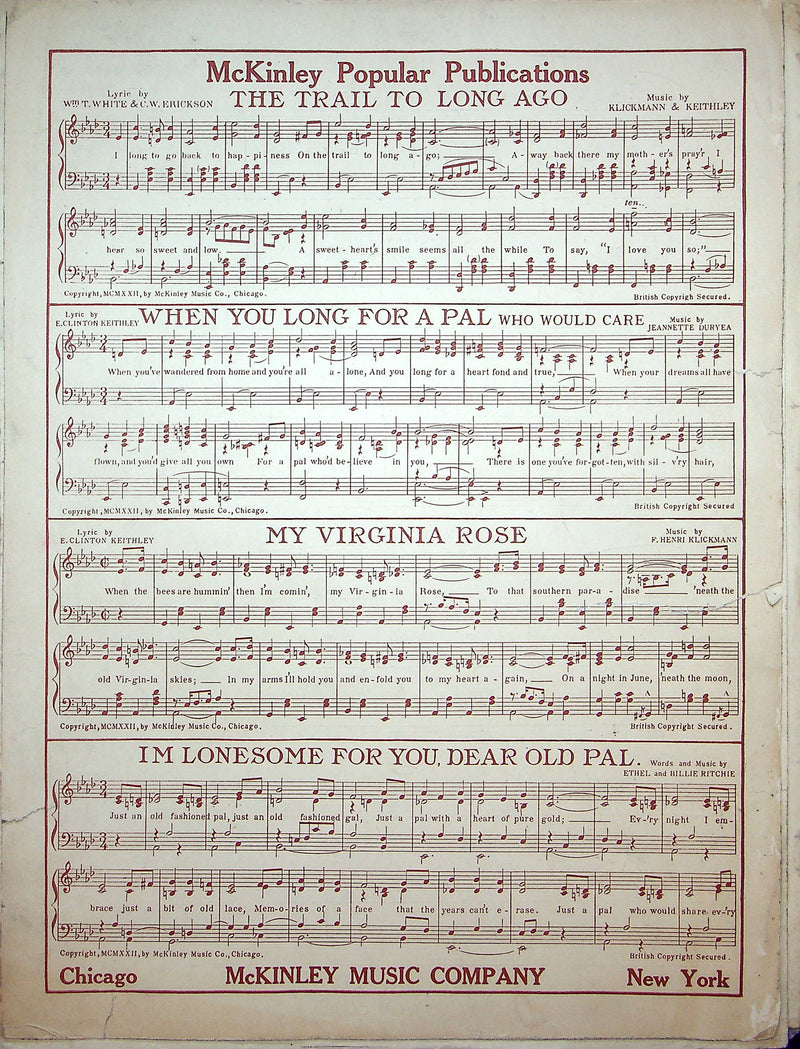 McKinley Popular Publications
Lyric by
Wm T. WHITE & C.W. ERICKSON
THE TRAIL TO LONG AGO
Music by
KLICKMANN & KEITHLEY
I long to go back to hap - pi - ness On the trail to long a - go; A - way back there my moth - er's pray'r I
hear so sweet and low. A sweet - heart's smile seems all the while To say, "I love you so;"
ten.
Copyright, MCMXXII, by McKinley Music Co., Chicago.
British Copyrigh Secured.
Lyric by
E. CLINTON KEITHLEY
WHEN YOU LONG FOR A PAL WHO WOULD CARE
Music by
JEANNETTE DURYEA
When you've wandered from home and you're all a - lone, And you long for a heart fond and true, When your dreams all have
flown, and you'd give all you own For a pal who'd be - lieve in you, There is one you've for - got - ten, with sil - v'ry hair,
Copyright, MCMXXII, by McKinley Music Co., Chicago.
British Copyright Secured
Lyric by
E. CLINTON KEITHLEY
MY VIRGINIA ROSE
Music by
F. HENRI KLICKMANN
When the bees are hummin' then I'm comin', my Vir - gin - ia Rose, To that southern par - a - dise 'neath the
old Vir - gin - ia skies; In my arms I'll hold you and en - fold you to my heart a - gain, On a night in June, 'neath the moon,
Copyright, MCMXXII, by McKinley Music Co., Chicago.
British Copyright Secured.
I'M LONESOME FOR YOU, DEAR OLD PAL.
Words and Music by
ETHEL and BILLIE RITCHIE
Just an old fashioned pal, just an old fashioned gal, Just a pal with a heart of pure gold; Ev-'ry night I em -
brace just a bit of old lace, Mem - o - ries of a face that the years can't e - rase. Just a pal who would share ev-'ry
Copyright, MCMXXII, by McKinley Music Co., Chicago.
British Copyright Secured.
Chicago McKINLEY MUSIC COMPANY New York